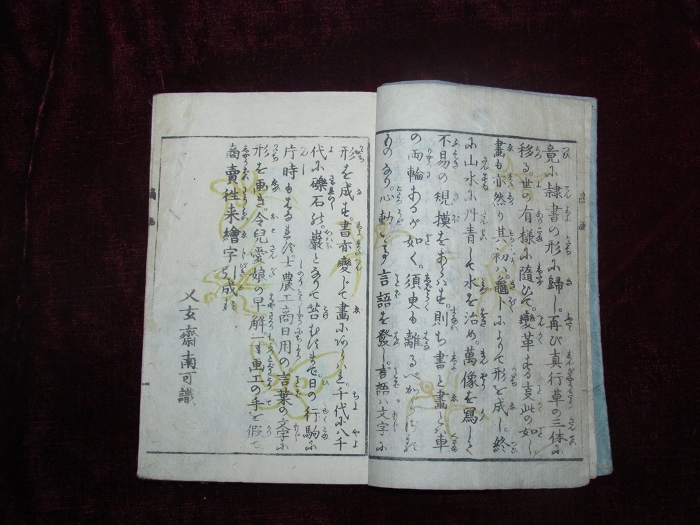 竟に隷書の形に歸し。再び真行草の三体に
移る世の有様に隨ひて。變革する支此の如し
畫も亦然り其初ハ龜卜によりて形を成し。終
に山水に丹青して水を治め。萬像を寫して
不易の規摸をあらハす。則ち書と畫とハ車
の両輪あるが如く。須臾も離るべからざる
ものなり。心動とき言語を發し。言語ハ文字に
形を成す。書亦變じて畫にあらハる。千代に八千
代に礫石の。巌となりて苔むすまで日の行駒に
片時も士農工商日用の言葉の文字に
形を画き。令兒愛娘の早解に画工の手を假て
商賣徃来繪字引成
乂玄齋南可識